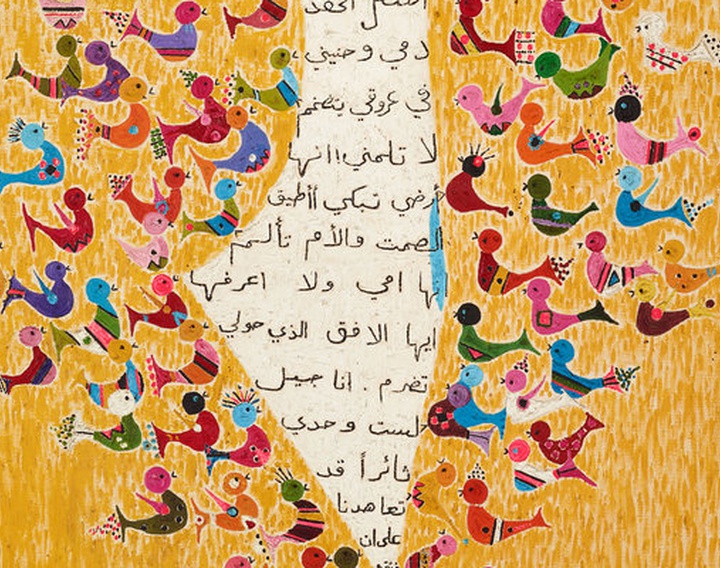 الحقد
دمي وحنيني
في عروقي
لا تلمني !! انها
أرضي تبكي أأطيق
الصمت والأم تألم
انها امي ولا اعرفها
ايها الافق الذي حولي
تضرم . انا جيل
لست وحدي
ثائراً قد
تعاهدنا
على ان